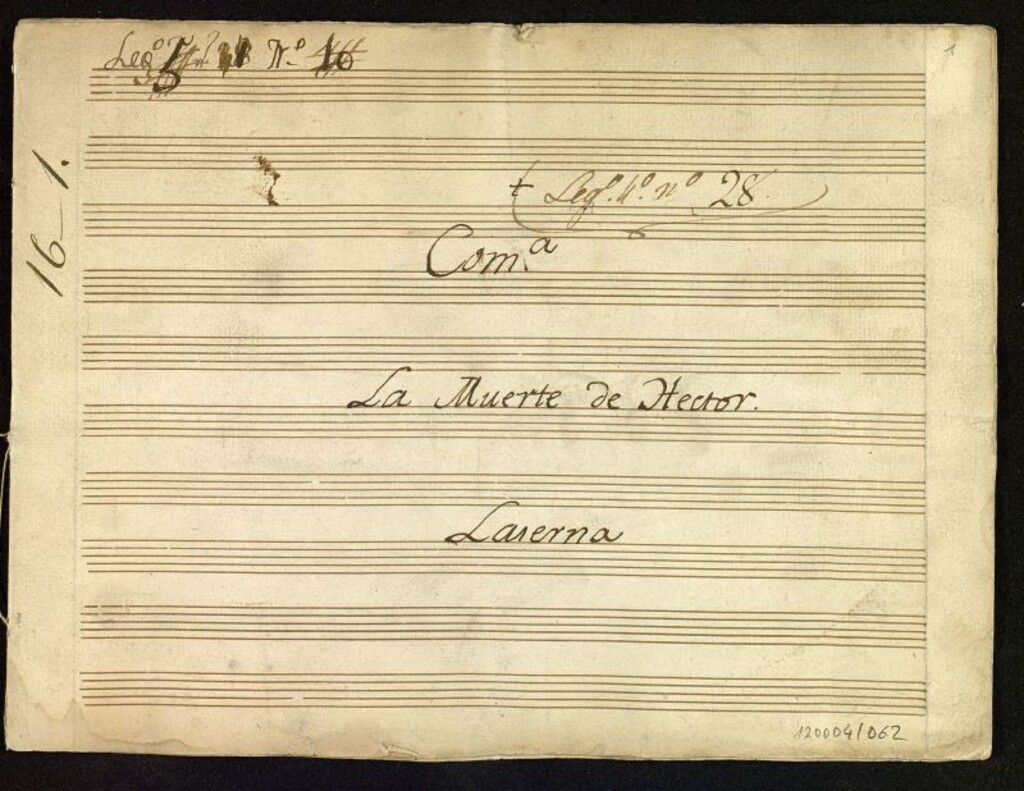 Leg.º Nº 16
1
16-1.
Leg.º 4.º nº 28.
Com.ª
La Muerte de Hector.
Laserna
120004/062